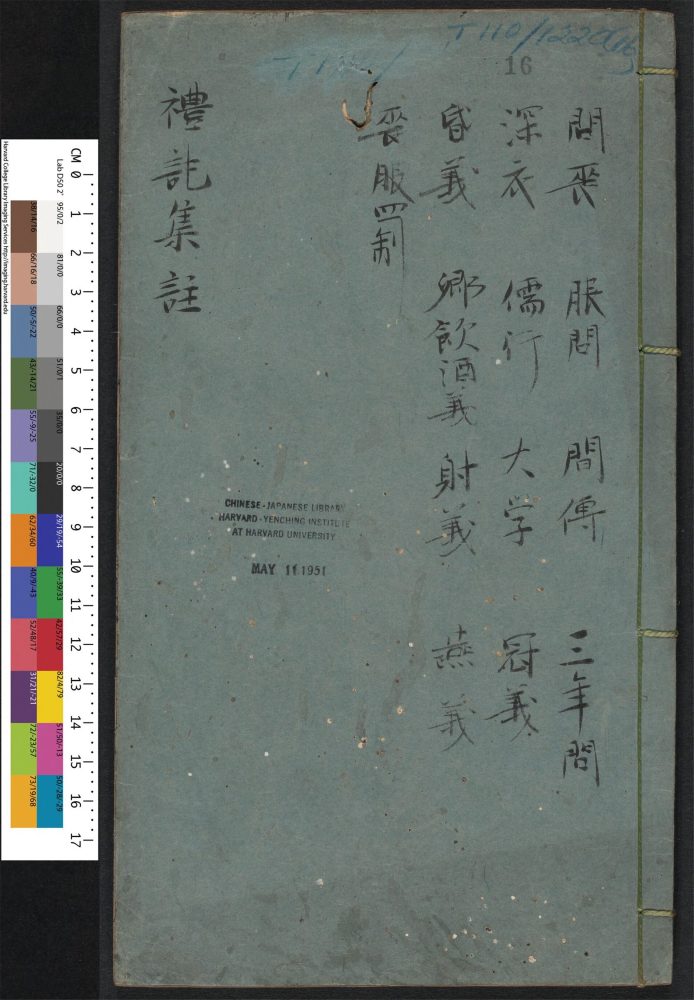 T110/1220(16
16
問喪 服問 間傳 三年問
深衣 儒行 大学 冠義
昏義 鄉飲酒義 射義 燕義
喪服四制
禮記集註
CHINESE-JAPANESE LIBRARY
HARVARD-YENCHING INSTITUTE
AT HARVARD UNIVERSITY
MAY 11 1951
CM 0
1
2
3
4
5
6
7
8
9
10
11
12
13
14
15
16
17
Lab D50 2°
95/0/2
81/0/0
66/0/0
51/0/1
35/0/0
20/0/0
29/19/-54
55/-39/33
42/57/29
82/4/79
51/50/-13
50/-28/-29
38/14/16
66/16/18
50/-5/-22
43/-14/21
55/-9/-25
71/-32/0
62/34/60
40/9/-43
52/48/17
31/21/-21
72/-23/57
73/19/68
Harvard College Library Imaging Services http://imaging.harvard.edu